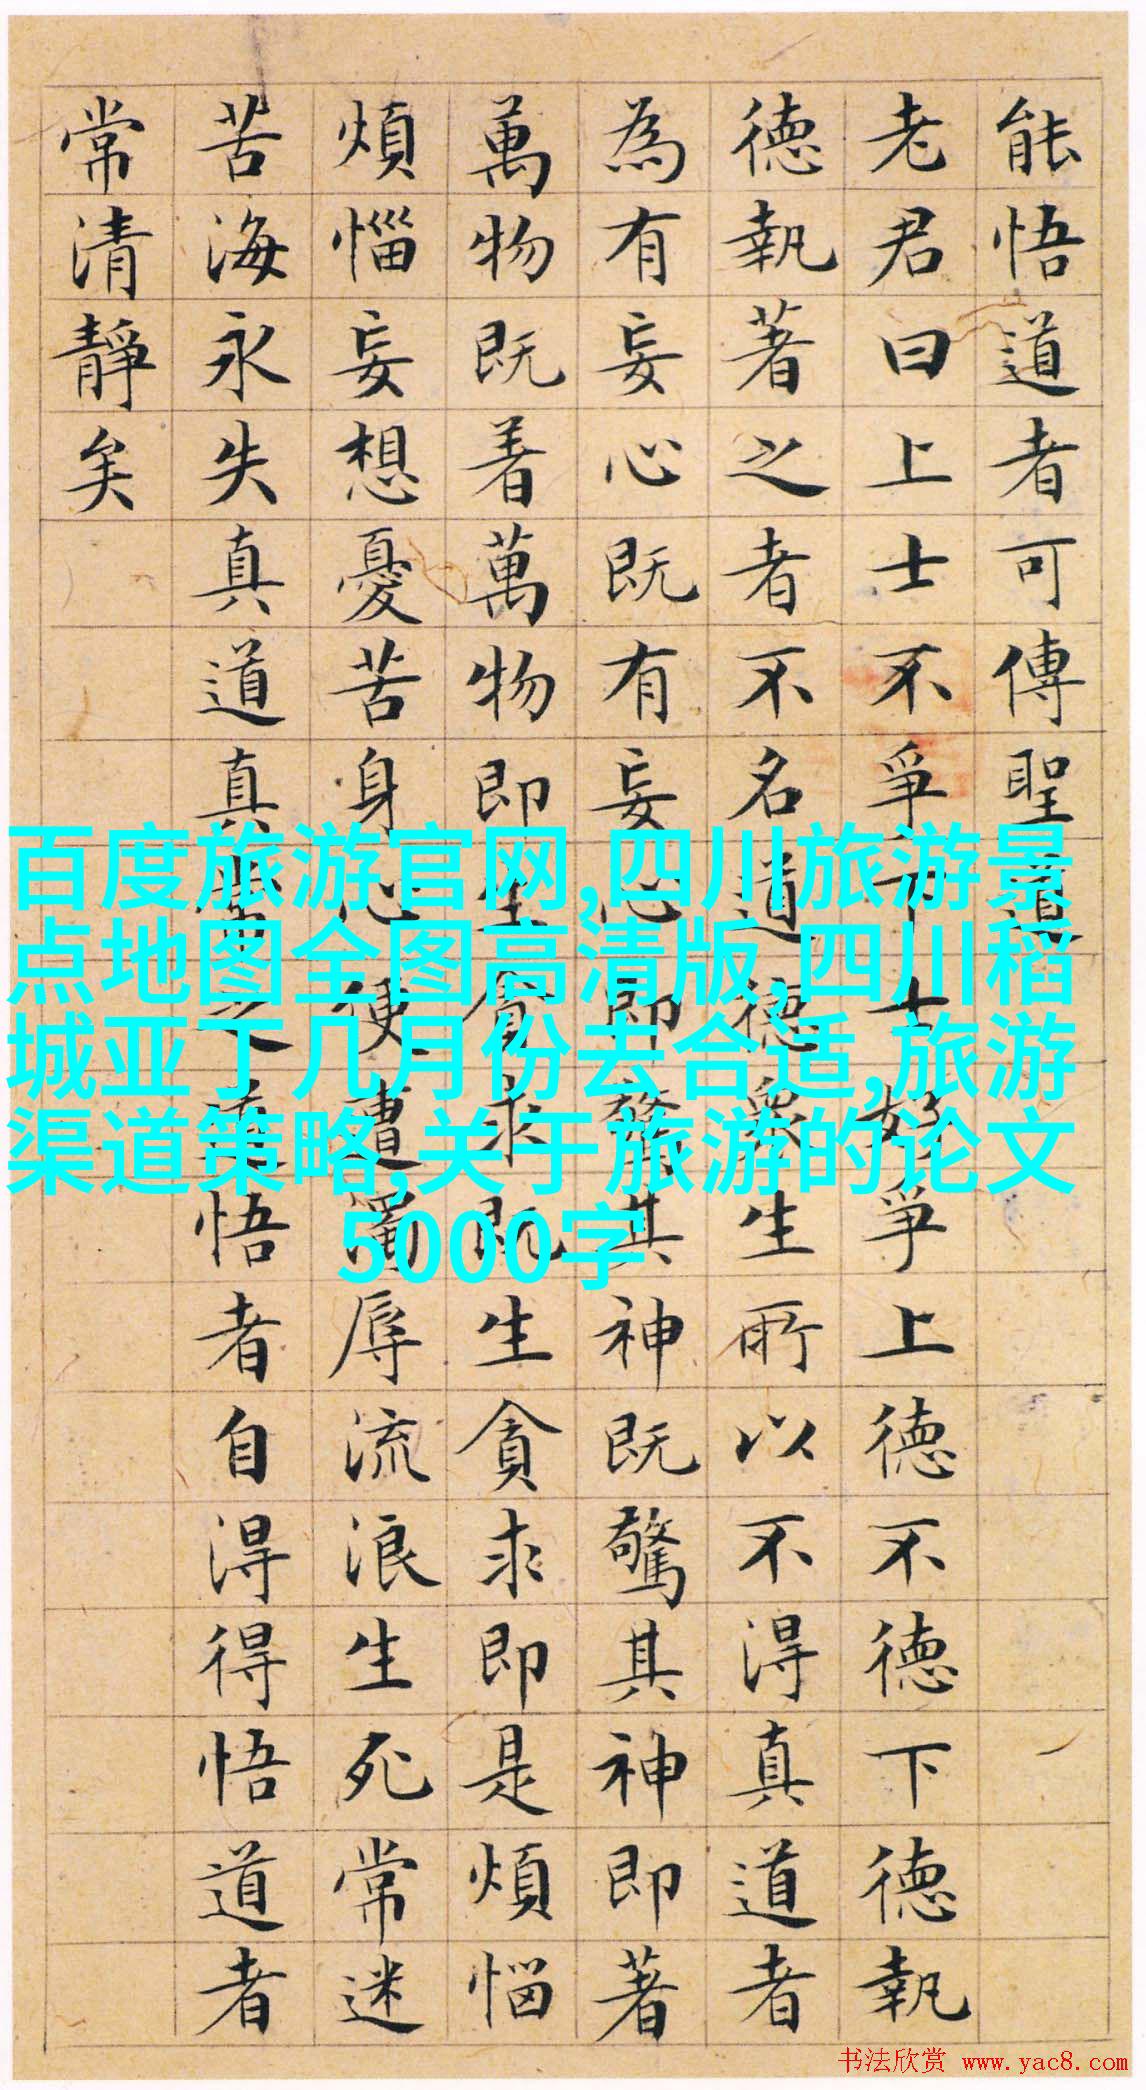 能悟道者可傳聖道
老君曰上士不爭下士好爭上德不德下德執
德執著之者不名道德眾生所以不得真道者
為有妄心既有妄心即驚其神既驚其神即著
萬物既着萬物即生貪求既生貪求即是煩惱
煩惱妄想憂苦身心便遭濁辱流浪生死常迷
苦海永失真道真常之道悟者自得得悟道者
常清靜矣
百度旅游官网,四川旅游景
点地图全图高清版,四川稻
城亚丁几月份去合适,旅游
渠道策略,关于旅游的论文
5000字
书法欣赏 www.yac8.com